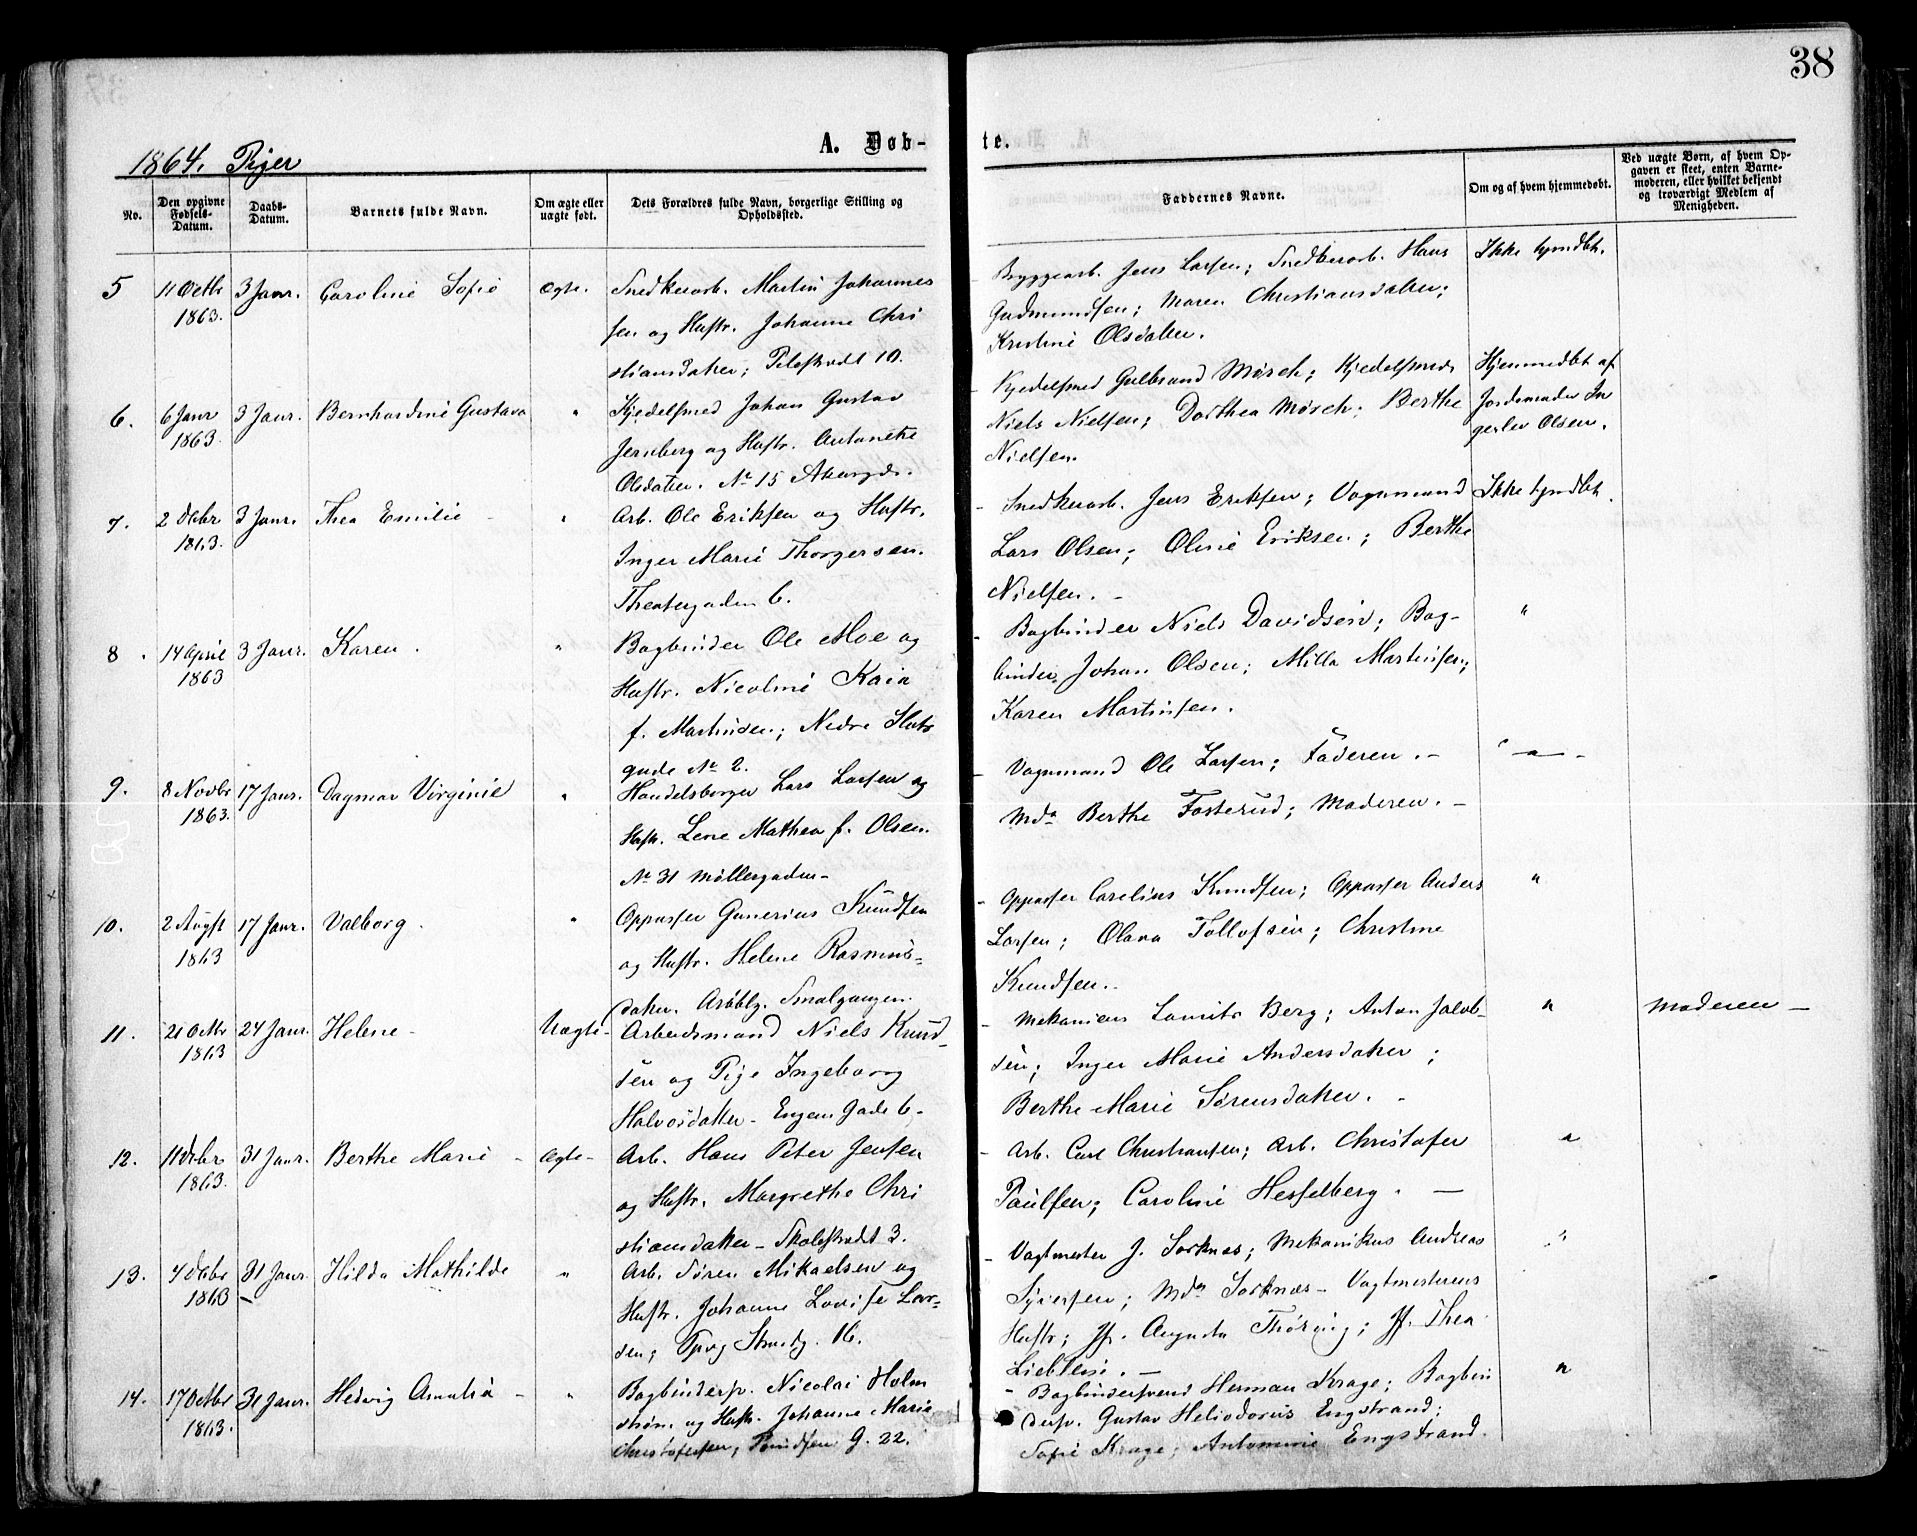 38
A. Døb-
te.
1864. Piger
No.
Den opgivne Fødsels-Datum.
Daabs-Datum.
Barnets fulde Navn.
Om ægte eller uægte født.
Dets Forældres fulde Navn, borgerlige Stilling og Opholdssted.
Faddernes Navne.
Om og af hvem hjemmedøbt.
Ved uægte Børn, af hvem Opgaven er skeet, enten Barnemoderen, eller hvilket bekjendt og troværdigt Medlem af Menigheden.
5 11 Octbr 1863. 3 Janr. Caroline Sofie Ægte.
Snedkerarb. Martin Johannes
sen og Hustr. Johanne Chri
stiansdatter; Pilestrædt 10.
Bryggearb. Jens Larsen; Snedkerarb. Hans
Gudmundsen; Maren Christiansdatter;
Kristine Olsdatter.
Ikke hjmdbt.
6. 6 Janr 1863. 3 Janr. Bernhardine Gustava "
Kjedelsmed Johan Gustav
Jernberg og Hustr. Antonette
Olsdatter. No 15
- Kjedelsmed Gulbrand Mørch; Kjedelsmed
Niels Nielsen; Dorthea Mørch; Berthe
Nielsen.
Hjemmedbt af
Jordemoder In
gerlev Olsen.
7. 2 Debr 1863. 3 Janr. Thea Emilie - "
Arb. Ole Eriksen og Hustr.
Inger Marie Thorgersen.
Theatergaden 6.
- Snedkerarb. Jens Eriksen; Vognmand
Lars Olsen; Oline Eriksen; Berthe
Nielsen. -
Ikke hjmdbt.
8. 14 April 1863 3 Janr. Karen. "
Bogbinder Ole Moe og
Hustr. Nicoline Kaia
f. Martinsen; Nedre Slots
gade No 2.
- Bogbinder Niels Davidsen; Bog-
binder Johan Olsen; Milla Martinsen;
Karen Martinsen.
"
9. 8 Novbr 1863. 17 Janr. Dagmar Virginie "
Handelsborger Lars Larsen og
Hustr. Lene Mathea f. Olsen.
No 31 Møllergaden-
- Vognmand Ole Larsen; Faderen. -
Mda Berthe Fosterud; Moderen. -
"
10. 2 Augst 1863 17 Janr. Valborg. "
Oppasser Gunerius Knudsen
og Hustr. Helene Rasmus-
datter. Smalgangen.
- Oppasser Carelius Knudsen; Oppasser Anders
Larsen; Olava Tollofsen; Christine
Knudsen.
"
11. 21 Octbr 1863 24 Janr. Helene- Uægte-
Arbeidsmand Niels Knud-
sen og Pige Ingeborg
Halvorsdatter- Engens Gade 6-
- Mekanicus Berg; Anton Jakob-
sen; Inger Marie Andersdatter;
Berthe Marie Sørensdatter. -
"
Moderen -
12. 11 Debr 1863. 31 Janr. Berthe Marie - Ægte-
Arb. Hans Peter Jensen
og Hustr. Margrethe Chri
stiansdatter- 3.
- Arb. Carl Christiansen; Arb. Christofer
Paulsen; Caroline Hesselberg. -
"
13. 4 Debr 1863 31 Janr. Hilda Mathilde "
Arb. Søren Mikaelsen og
Hustr. Johanne Lovise Lar-
sen; 16.
- Vagtmester J. Sorknæs; Mekanikus Andreas
Syversen; Mda Sorknæs- Vagtmesterens
Hustr; Jf. Augusta Jf. Thea
-
"
14. 17 Octbr 1863. 31 Janr. Hedvig Amalia - "
Bogbindersv. Nicolai Holm
strøm og Hustr. Johanne Marie
Christofersen; G. 22.
- Bogbindersvend Herman Krage; Bogbin
dersv. Gustav Heliodorus Engstrand;
Sofie Krage; Engstrand.
"